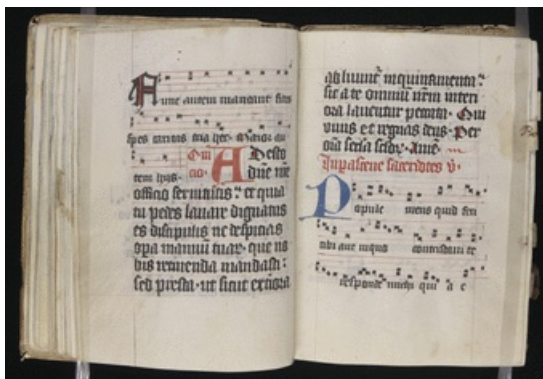 Nunc autem maneant fides
spes caritas tria hec · maior au
tem hijs ·
Adesto
dñe
officio seruitutis : et quia
tu pedes lauare dignatus
es discipulis ne despicias
opa manuum tuar · que no
bis retinenda mandasti :
sed presta · ut sicut exteriora
sic a te omniũ nrm interi
ora lauentur pcata · Qui
viuis et regnas deus · Per
oia secla seclor · Amē
sacerdotes v ·
Popule meus quid feci
tibi aut in quo contristaui te
responde michi qui a e